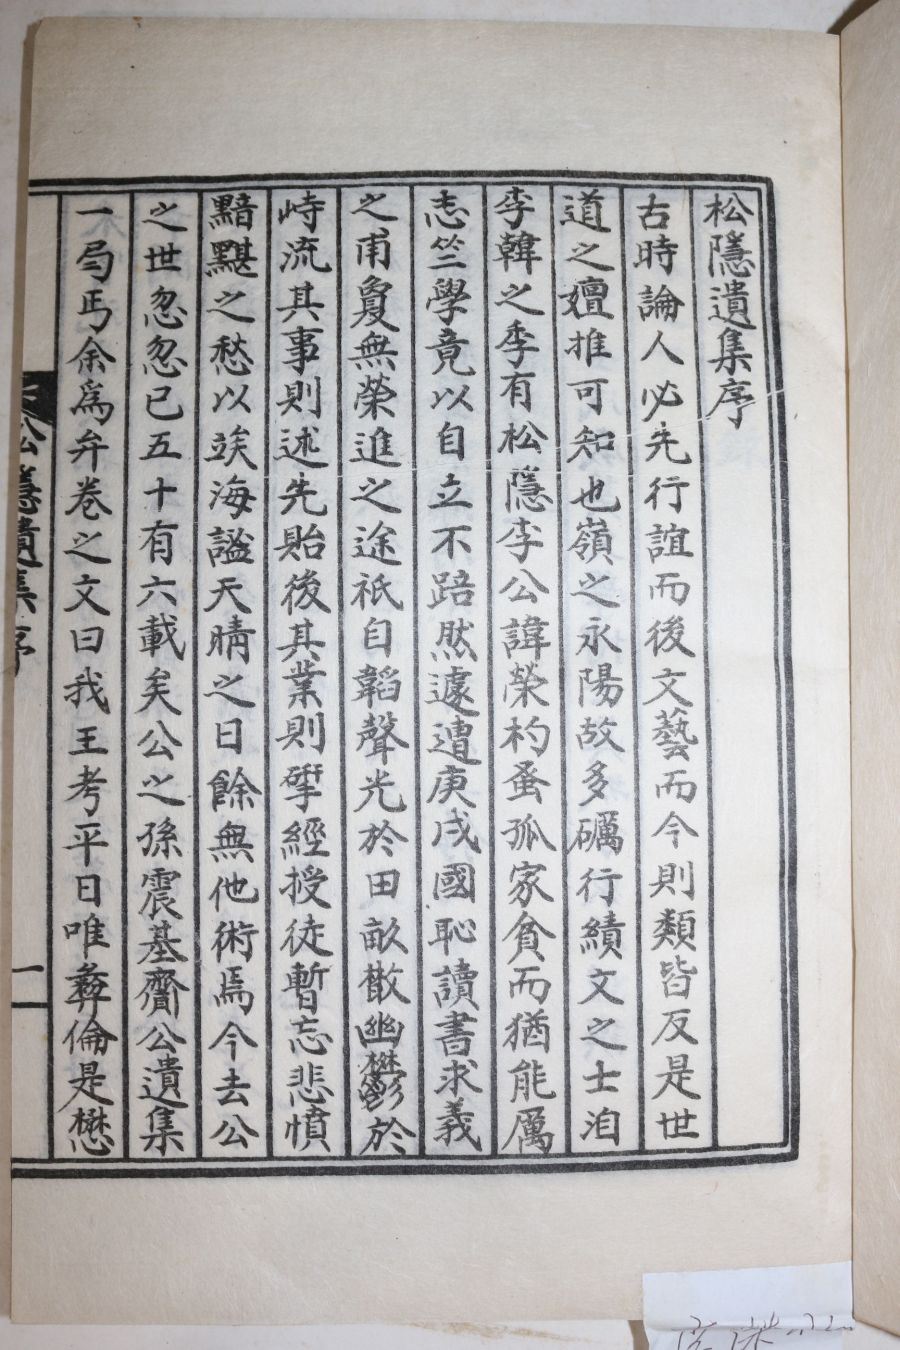 松隱遺集序
古時論人必先行誼而後文藝而今則類皆反是世
道之嬗推可知也嶺之永陽故多礪行績文之士洎
李韓之季有松隱李公諱榮杓蚤孤家貧而猶能厲
志竺學竟以自立不踣然遽遭庚戌國恥讀書求義
之甫敻無榮進之途祇自韜聲光於田畝散幽鬱於
峙流其事則述先貽後其業則揅經授徒暫忘悲憤
黯黮之愁以竢海謐天晴之日餘無他術焉今去公
之世忽忽已五十有六載矣公之孫震基齎公遺集
一局丐余爲弁卷之文曰我王考平日唯彝倫是懋
松隱遺集序
一